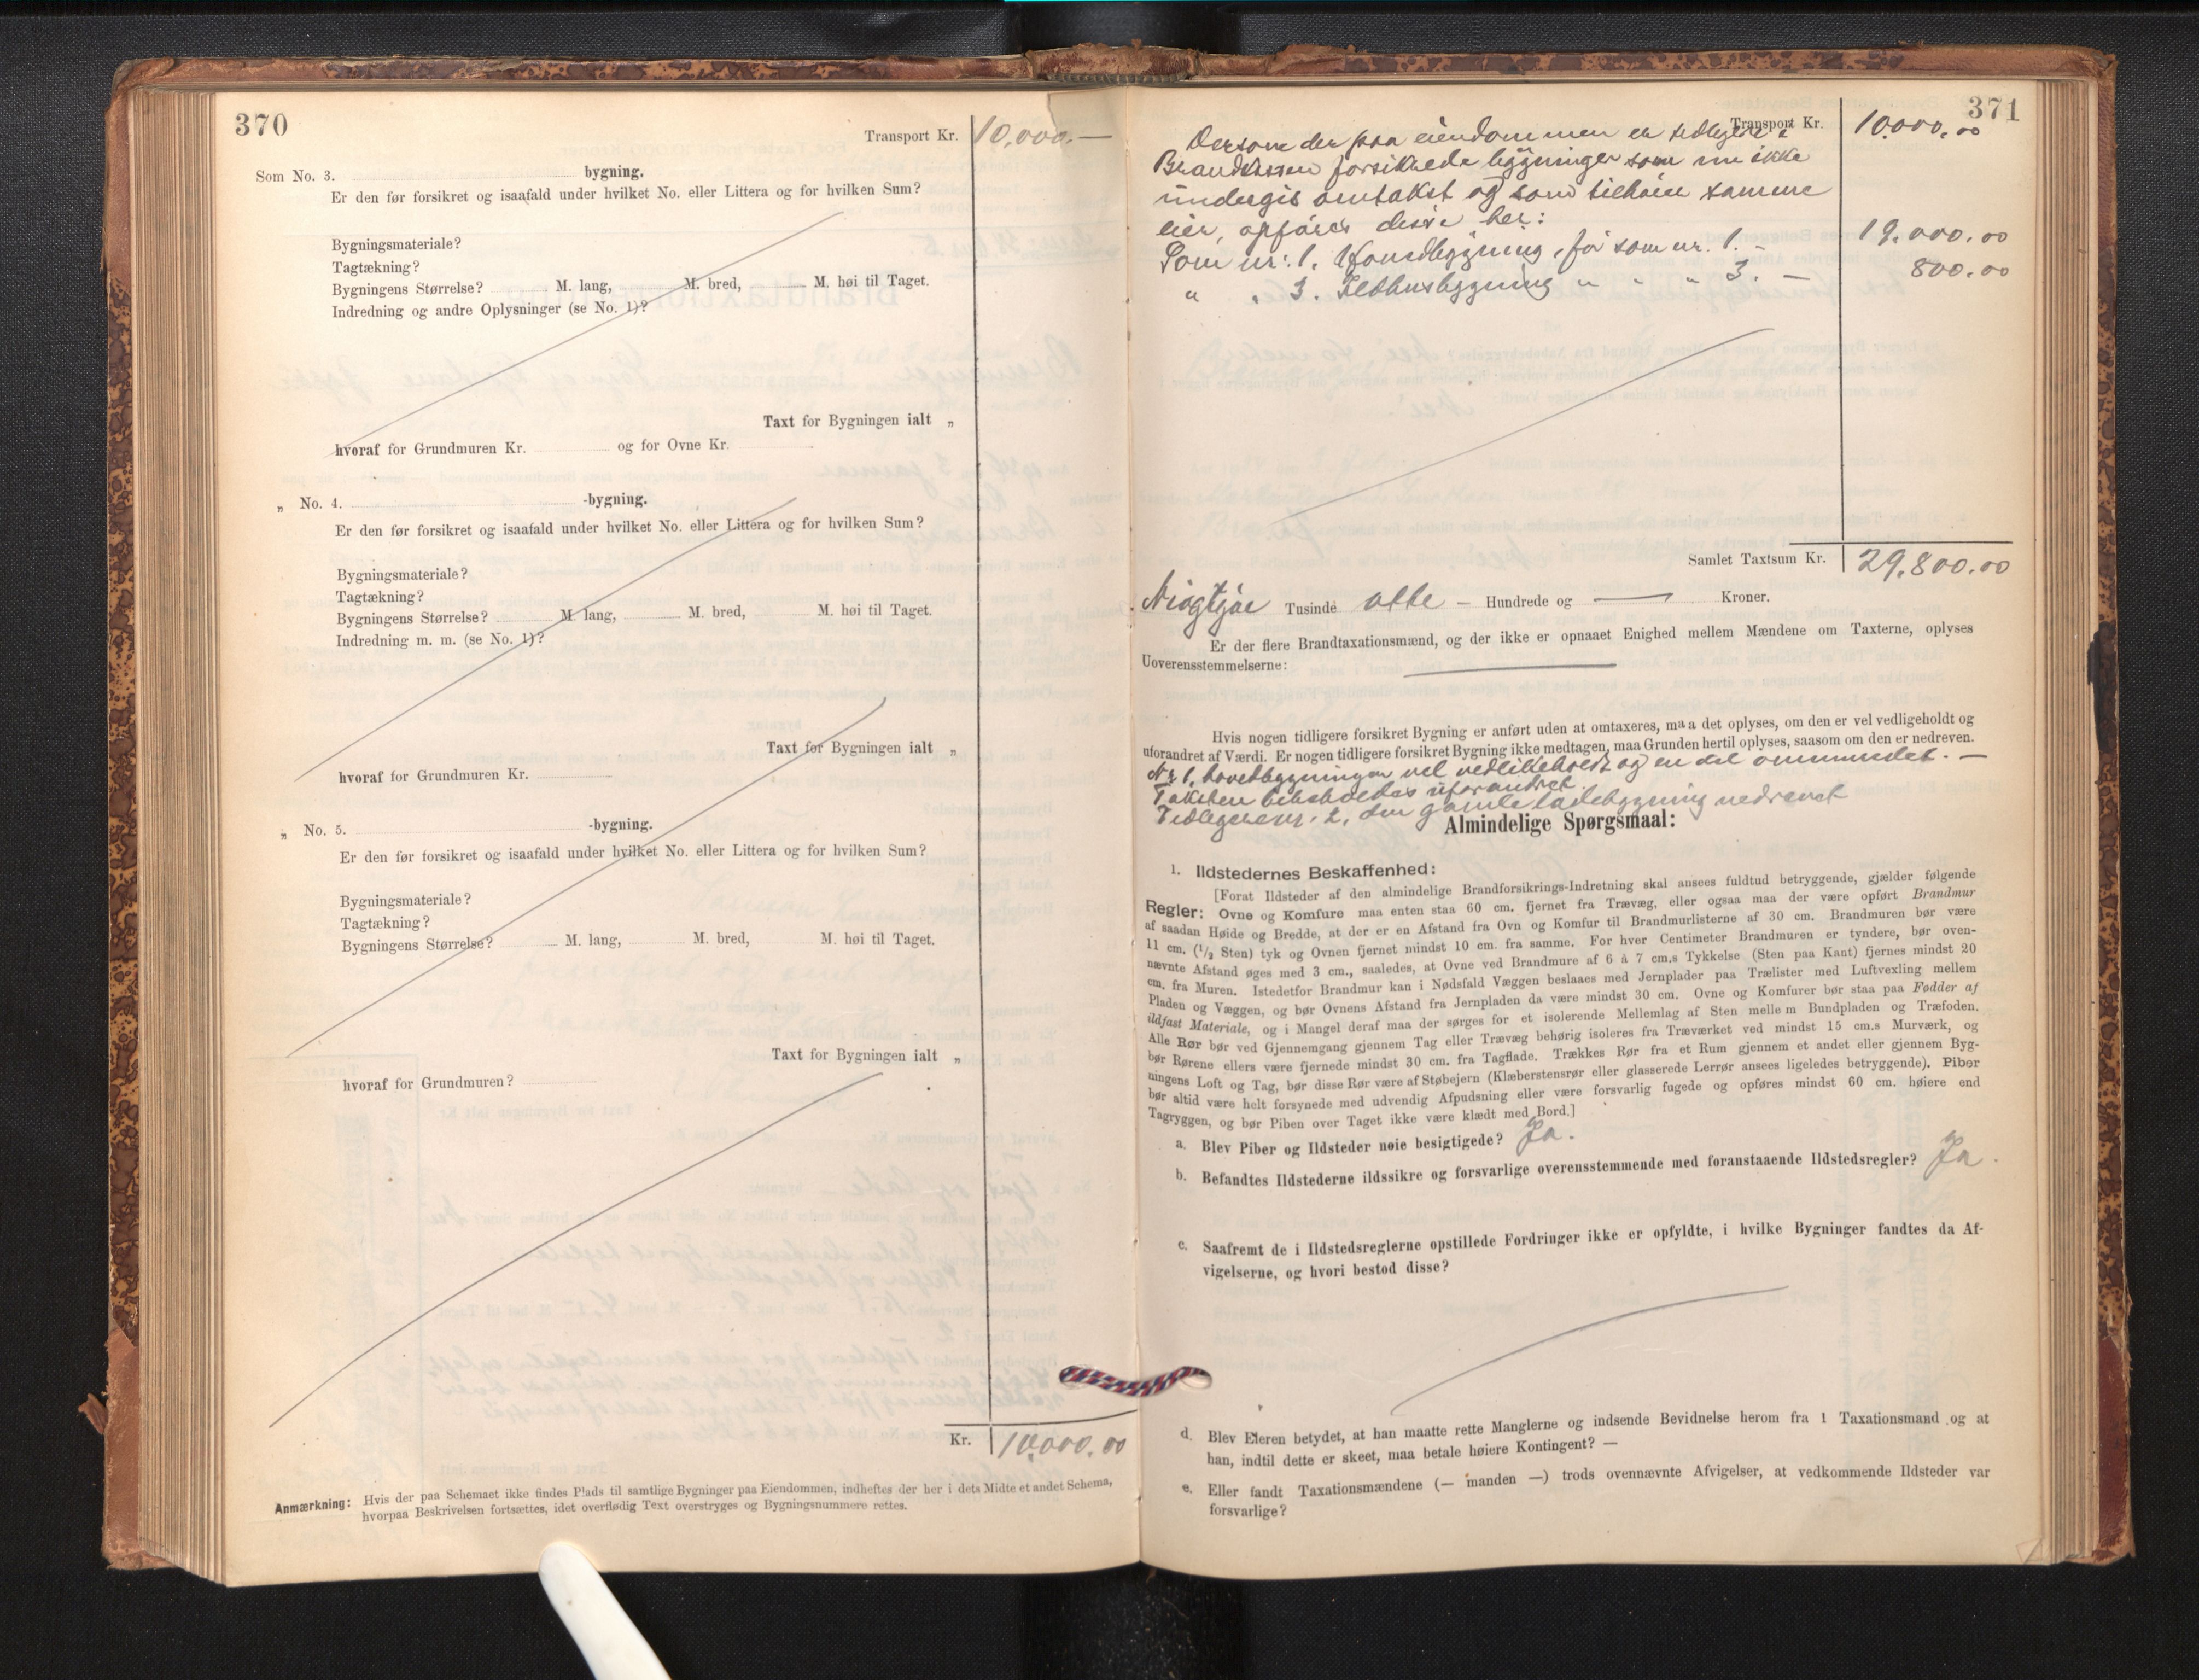 370
Transport Kr. 10,000.—
Som No. 3. bygning.
Er den før forsikret og isaafald under hvilket No. eller Littera og for hvilken Sum?
Bygningsmateriale?
Tagtækning?
Bygningens Størrelse? M. lang, M. bred, M. høi til Taget.
Indredning og andre Oplysninger (se No. 1)?
Taxt for Bygningen ialt „
hvoraf for Grundmuren Kr. og for Ovne Kr.
„ No. 4. -bygning.
Er den før forsikret og isaafald under hvilket No. eller Littera og for hvilken Sum?
Bygningsmateriale?
Tagtækning?
Bygningens Størrelse? M. lang, M. bred, M. høi til Taget.
Indredning m. m. (se No. 1)?
Taxt for Bygningen ialt „
hvoraf for Grundmuren Kr.
„ No. 5. -bygning.
Er den før forsikret og isaafald under hvilket No. eller Littera og for hvilken Sum?
Bygningsmateriale?
Tagtækning?
Bygningens Størrelse? M. lang, M. bred, M. høi til Taget.
Taxt for Bygningen ialt „
hvoraf for Grundmuren?
Kr. 10,000.00
Anmærkning: Hvis der paa Schemaet ikke findes Plads til samtlige Bygninger paa Eiendommen, indheftes der her i dets Midte et andet Schema,
hvorpaa Beskrivelsen fortsættes, idet overflødig Text overstryges og Bygningsnummere rettes.
371
Transport Kr. 10.000.00
Dersom der paa eiendommen er tidligere i
Brandkassen forsikrede bygninger som nu ikke
undergis omtakst og som tilhører samme
eier, opføres disse her:
Som nr. 1. Vaanbygning, før som nr. 1. — 19.000.00
" " 3. Ildhusbygning " " " 3. — 800.00
Samlet Taxtsum Kr. 29.800.00
Niogtjue Tusinde otte — Hundrede og — Kroner.
Er der flere Brandtaxationsmænd, og der ikke er opnaaet Enighed mellem Mændene om Taxterne, oplyses
Uoverensstemmelserne:
Hvis nogen tidligere forsikret Bygning er anført uden at omtaxeres, maa det oplyses, om den er vel vedligeholdt og
uforandret af Værdi. Er nogen tidligere forsikret Bygning ikke medtagen, maa Grunden hertil oplyses, saasom om den er nedreven.
Nr 1, hovedbygningen vel vedlikeholdt og en del ominnredet. —
Taksten beholdes uforandret.
Tidligere nr. 2, den gamle ladebygning nedrevet
Almindelige Spørgsmaal:
1. Ildstedernes Beskaffenhed:
[Forat Ildsteder af den almindelige Brandforsikrings-Indretning skal ansees fuldtud betryggende, gjælder følgende
Regler: Ovne og Komfure maa enten staa 60 cm. fjernet fra Trævæg, eller ogsaa maa der være opført Brandmur
af saadan Høide og Bredde, at der er en Afstand fra Ovn og Komfur til Brandmurlisterne af 30 cm. Brandmuren bør være
11 cm. (1/2 Sten) tyk og Ovnen fjernet mindst 10 cm. fra samme. For hver Centimeter Brandmuren er tyndere, bør oven-
nævnte Afstand øges med 3 cm., saaledes, at Ovne ved Brandmure af 6 à 7 cm.s Tykkelse (Sten paa Kant) fjernes mindst 20
cm. fra Muren. Istedetfor Brandmur kan i Nødsfald Væggen beslaaes med Jernplader paa Trælister med Luftvexling mellem
Pladen og Væggen, og bør Ovnens Afstand fra Jernpladen da være mindst 30 cm. Ovne og Komfurer bør staa paa Fødder af
ildfast Materiale, og i Mangel deraf maa der sørges for et isolerende Mellemlag af Sten mellem Bundpladen og Træfoden.
Alle Rør bør ved Gjennemgang gjennem Tag eller Trævæg behørig isoleres fra Træværket ved mindst 15 cm.s Murværk, og
bør Rørene ellers være fjernede mindst 30 cm. fra Tagflade. Trækkes Rør fra et Rum gjennem et andet eller gjennem Byg-
ningens Loft og Tag, bør disse Rør være af Støbejern (Klæberstensrør eller glasserede Lerrør ansees ligeledes betryggende). Piber
bør altid være helt forsynede med udvendig Afpudsning eller være forsvarlig fugede og opføres mindst 60 cm. høiere end
Tagryggen, og bør Piben over Taget ikke være klædt med Bord.]
a. Blev Piber og Ildsteder nøie besigtigede? Ja.
b. Befandtes Ildstederne ildssikre og forsvarlige overensstemmende med foranstaaende Ildstedsregler? Ja.
c. Saafremt de i Ildstedsreglerne opstillede Fordringer ikke er opfyldte, i hvilke Bygninger fandtes da Af-
vigelserne, og hvori bestod disse?
d. Blev Eieren betydet, at han maatte rette Manglerne og indsende Bevidnelse herom fra 1 Taxationsmand og at
han, indtil dette er skeet, maa betale høiere Kontingent? —
e. Eller fandt Taxationsmændene (— manden —) trods ovennævnte Afvigelser, at vedkommende Ildsteder var
forsvarlige?